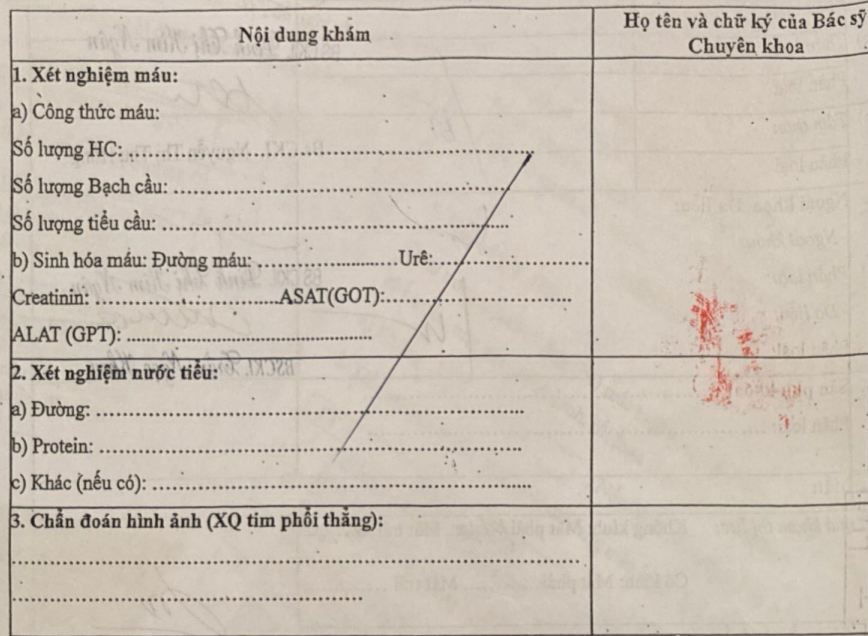 Nội dung khám
Họ tên và chữ ký của Bác sỹ
Chuyên khoa
1. Xét nghiệm máu:
a) Công thức máu:
Số lượng HC: ........................................................
Số lượng Bạch cầu: ........................................................
Số lượng tiểu cầu: ........................................................
b) Sinh hóa máu: Đường máu: ........................Urê:........................
Creatinin: ................................ASAT(GOT):................................
ALAT (GPT): ........................................
2. Xét nghiệm nước tiểu:
a) Đường: ........................................................................
b) Protein: ........................................................................
c) Khác (nếu có): ................................................................
3. Chẩn đoán hình ảnh (XQ tim phổi thẳng):
................................................................................
........................................................